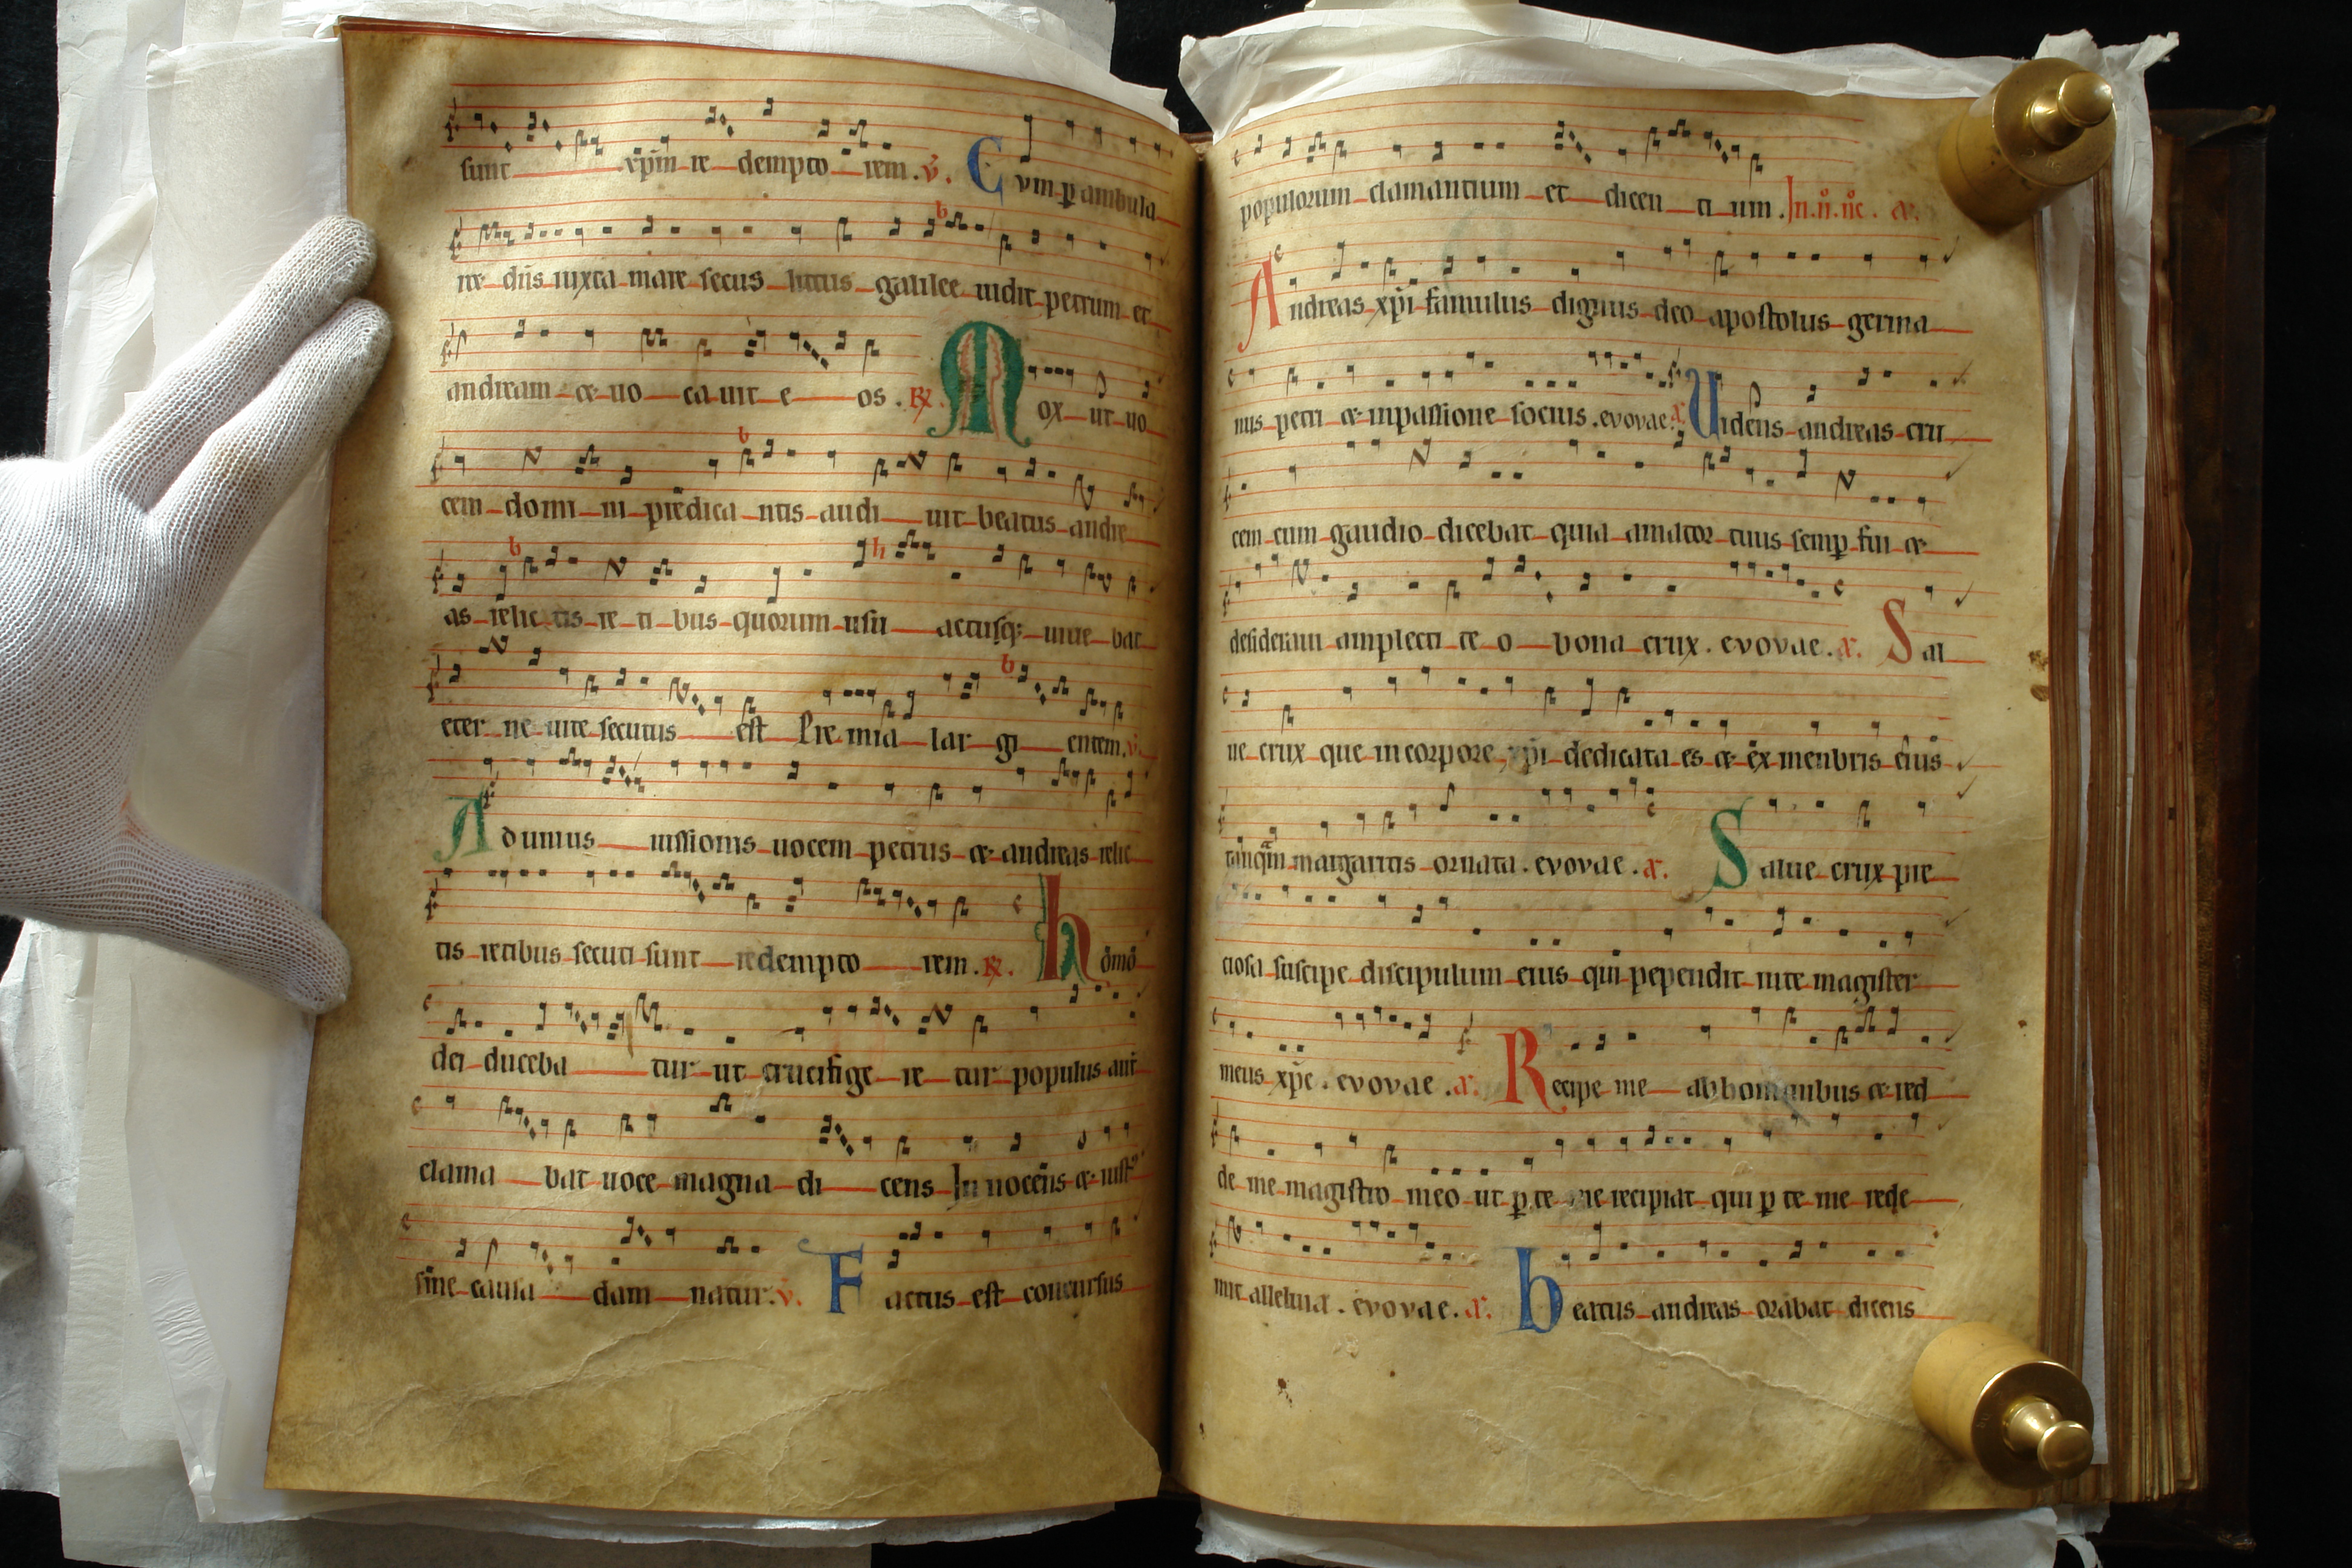 sunt xp̄m re dempto rem. v̄. Cum p ambula
re dn̄s iuxta mare secus littus galilee uidit petrum et
andream & uo ca uit e os. R̷ Mox ut uo
cem domi ni predica ntis audi uit beatus andre
as relic tis re ti bus quorum usu actusq; uiue bat
eter ne uite secutus est Pre mia lar gi entem. v̄.
Ad unius iussionis uocem petrus & andreas relic
tis retibus secuti sunt redempto rem. R̷. hōmō
dei duceba tur ut crucifige re tur populus aut̄
clama bat uoce magna di cens In nocens & iust
sine causa dam natur. v̄. Factus est concursus
populorum clamantium et dicen ti um. In .ii. n̊c. a.
Andreas xp̄i famulus dignus deo apostolus germa
nus petri & inpassione socius. evovae. a. Uidens andreas cru
cem cum gaudio dicebat quia amator tuus semp fui &
desideraui amplecti te o bona crux. evovae. a. Sal
ue crux que in corpore xp̄i dedicata es & ex menbris eius
tanq̄m margaritis ornata. evovae. a. Salue crux pre
ciosa suscipe discipulum eius qui pependit in te magister
meus xp̄e. evovae. a. Recipe me ab hominibus & red
de me magistro meo ut p te me recipiat qui p te me rede
mit alleluia. evovae. a. beatus andreas orabat dicens